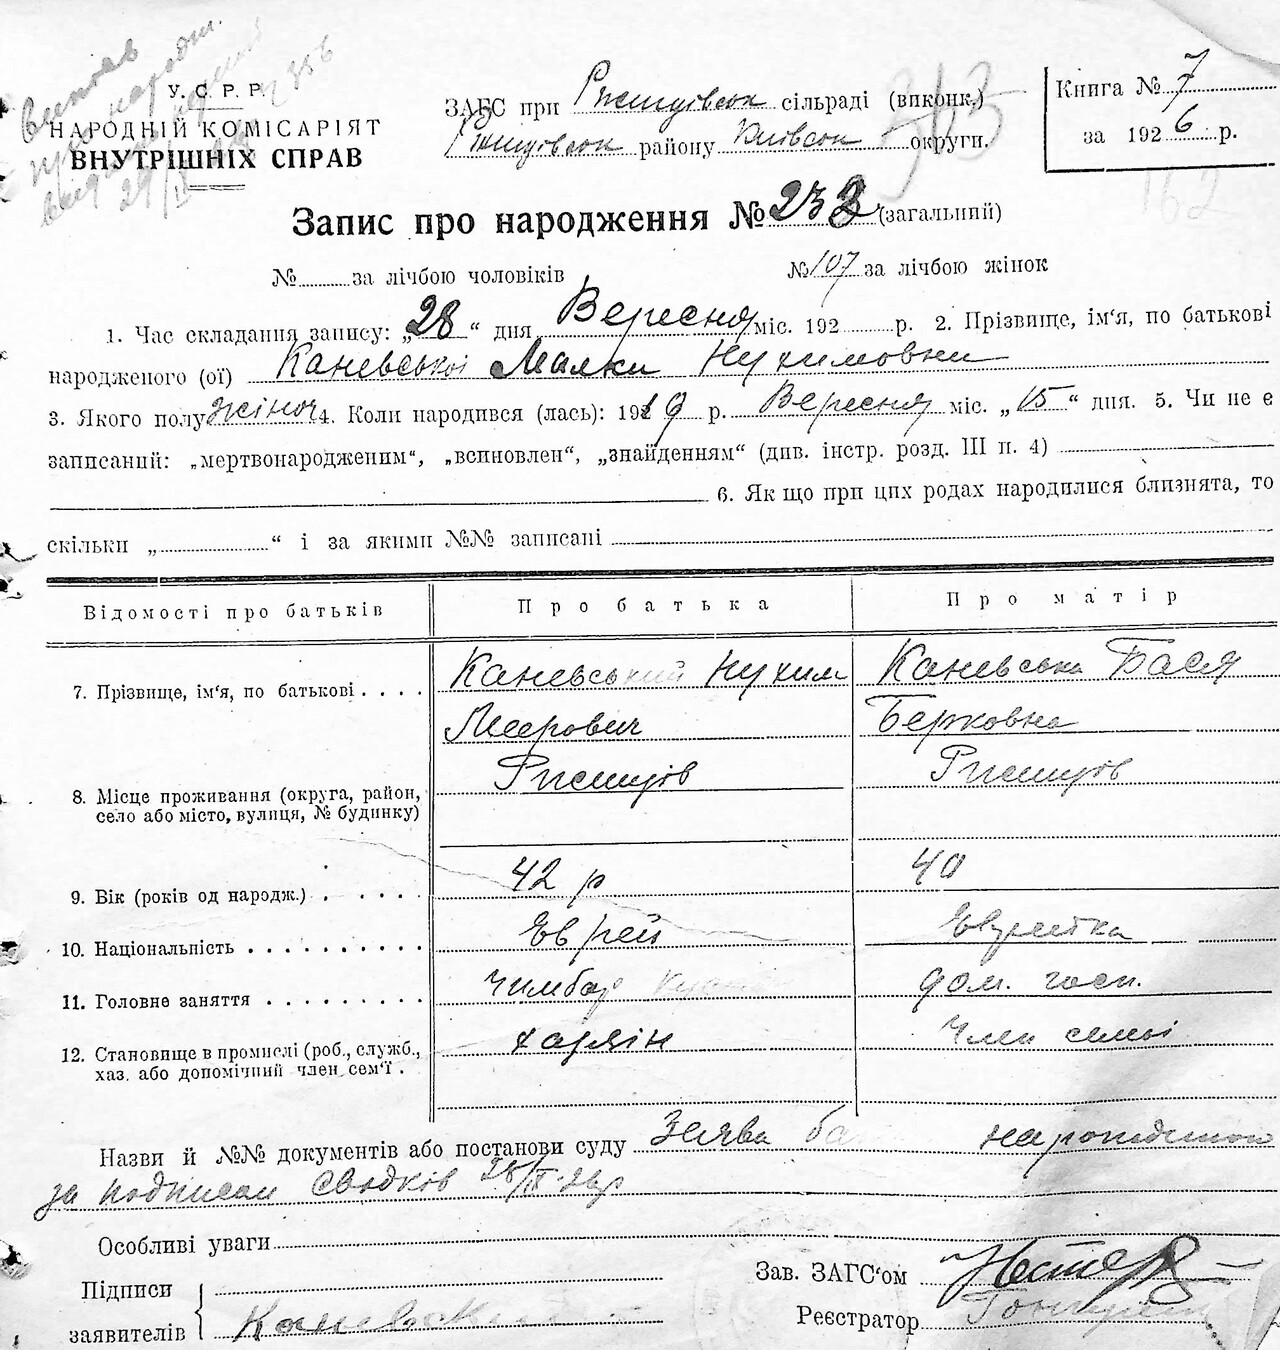 Витяг
про народж.
видано
29/IX
У. С. Р. Р.
НАРОДНІЙ КОМІСАРІЯТ
ВНУТРІШНІХ СПРАВ
ЗАГС при Ржищівськ сільраді (виконк.)
Ржищівськ району Київськ округи.
Книга № 7
за 1926 р.
Запис про народження № 232 (загальний)
№ за лічбою чоловіків № 107 за лічбою жінок
1. Час складання запису: „28“ дня Вересня міс. 192 р. 2. Прізвище, ім'я, по батькові
народженого (ої) Каневської Малки Нухимовни
3. Якого полу жіноч 4. Коли народився (лась): 1919 р. Вересня міс. „15“ дня. 5. Чи не є
записаний: „мертвонародженим“, „всиновлен“, „знайденням“ (див. інстр. розд. III п. 4)
6. Як що при цих родах народилися близнята, то
скільки „ “ і за якими №№ записані
Відомості про батьків Про батька Про матір
7. Прізвище, ім'я, по батькові . . . . Каневський Нухим Каневська Бася
Меерович Берковна
8. Місце проживання (округа, район, Ржищів Ржищів
село або місто, вулиця, № будинку)
9. Вік (років од народж.) . . . . . 42 р 40
10. Національність . . . . . . . . . . Єврей Єврейка
11. Головне заняття . . . . . . . . . Чимбар дом. госп.
12. Становище в промислі (роб., служб., хазяїн Член семьі
хаз. або допомічний член сем'ї .
Назви й №№ документів або постанови суду Заява народженою
за подписом свідків 28/IX 26р
Особливі уваги
Підписи
заявителів Каневский
Зав. ЗАГС'ом
Реєстратор